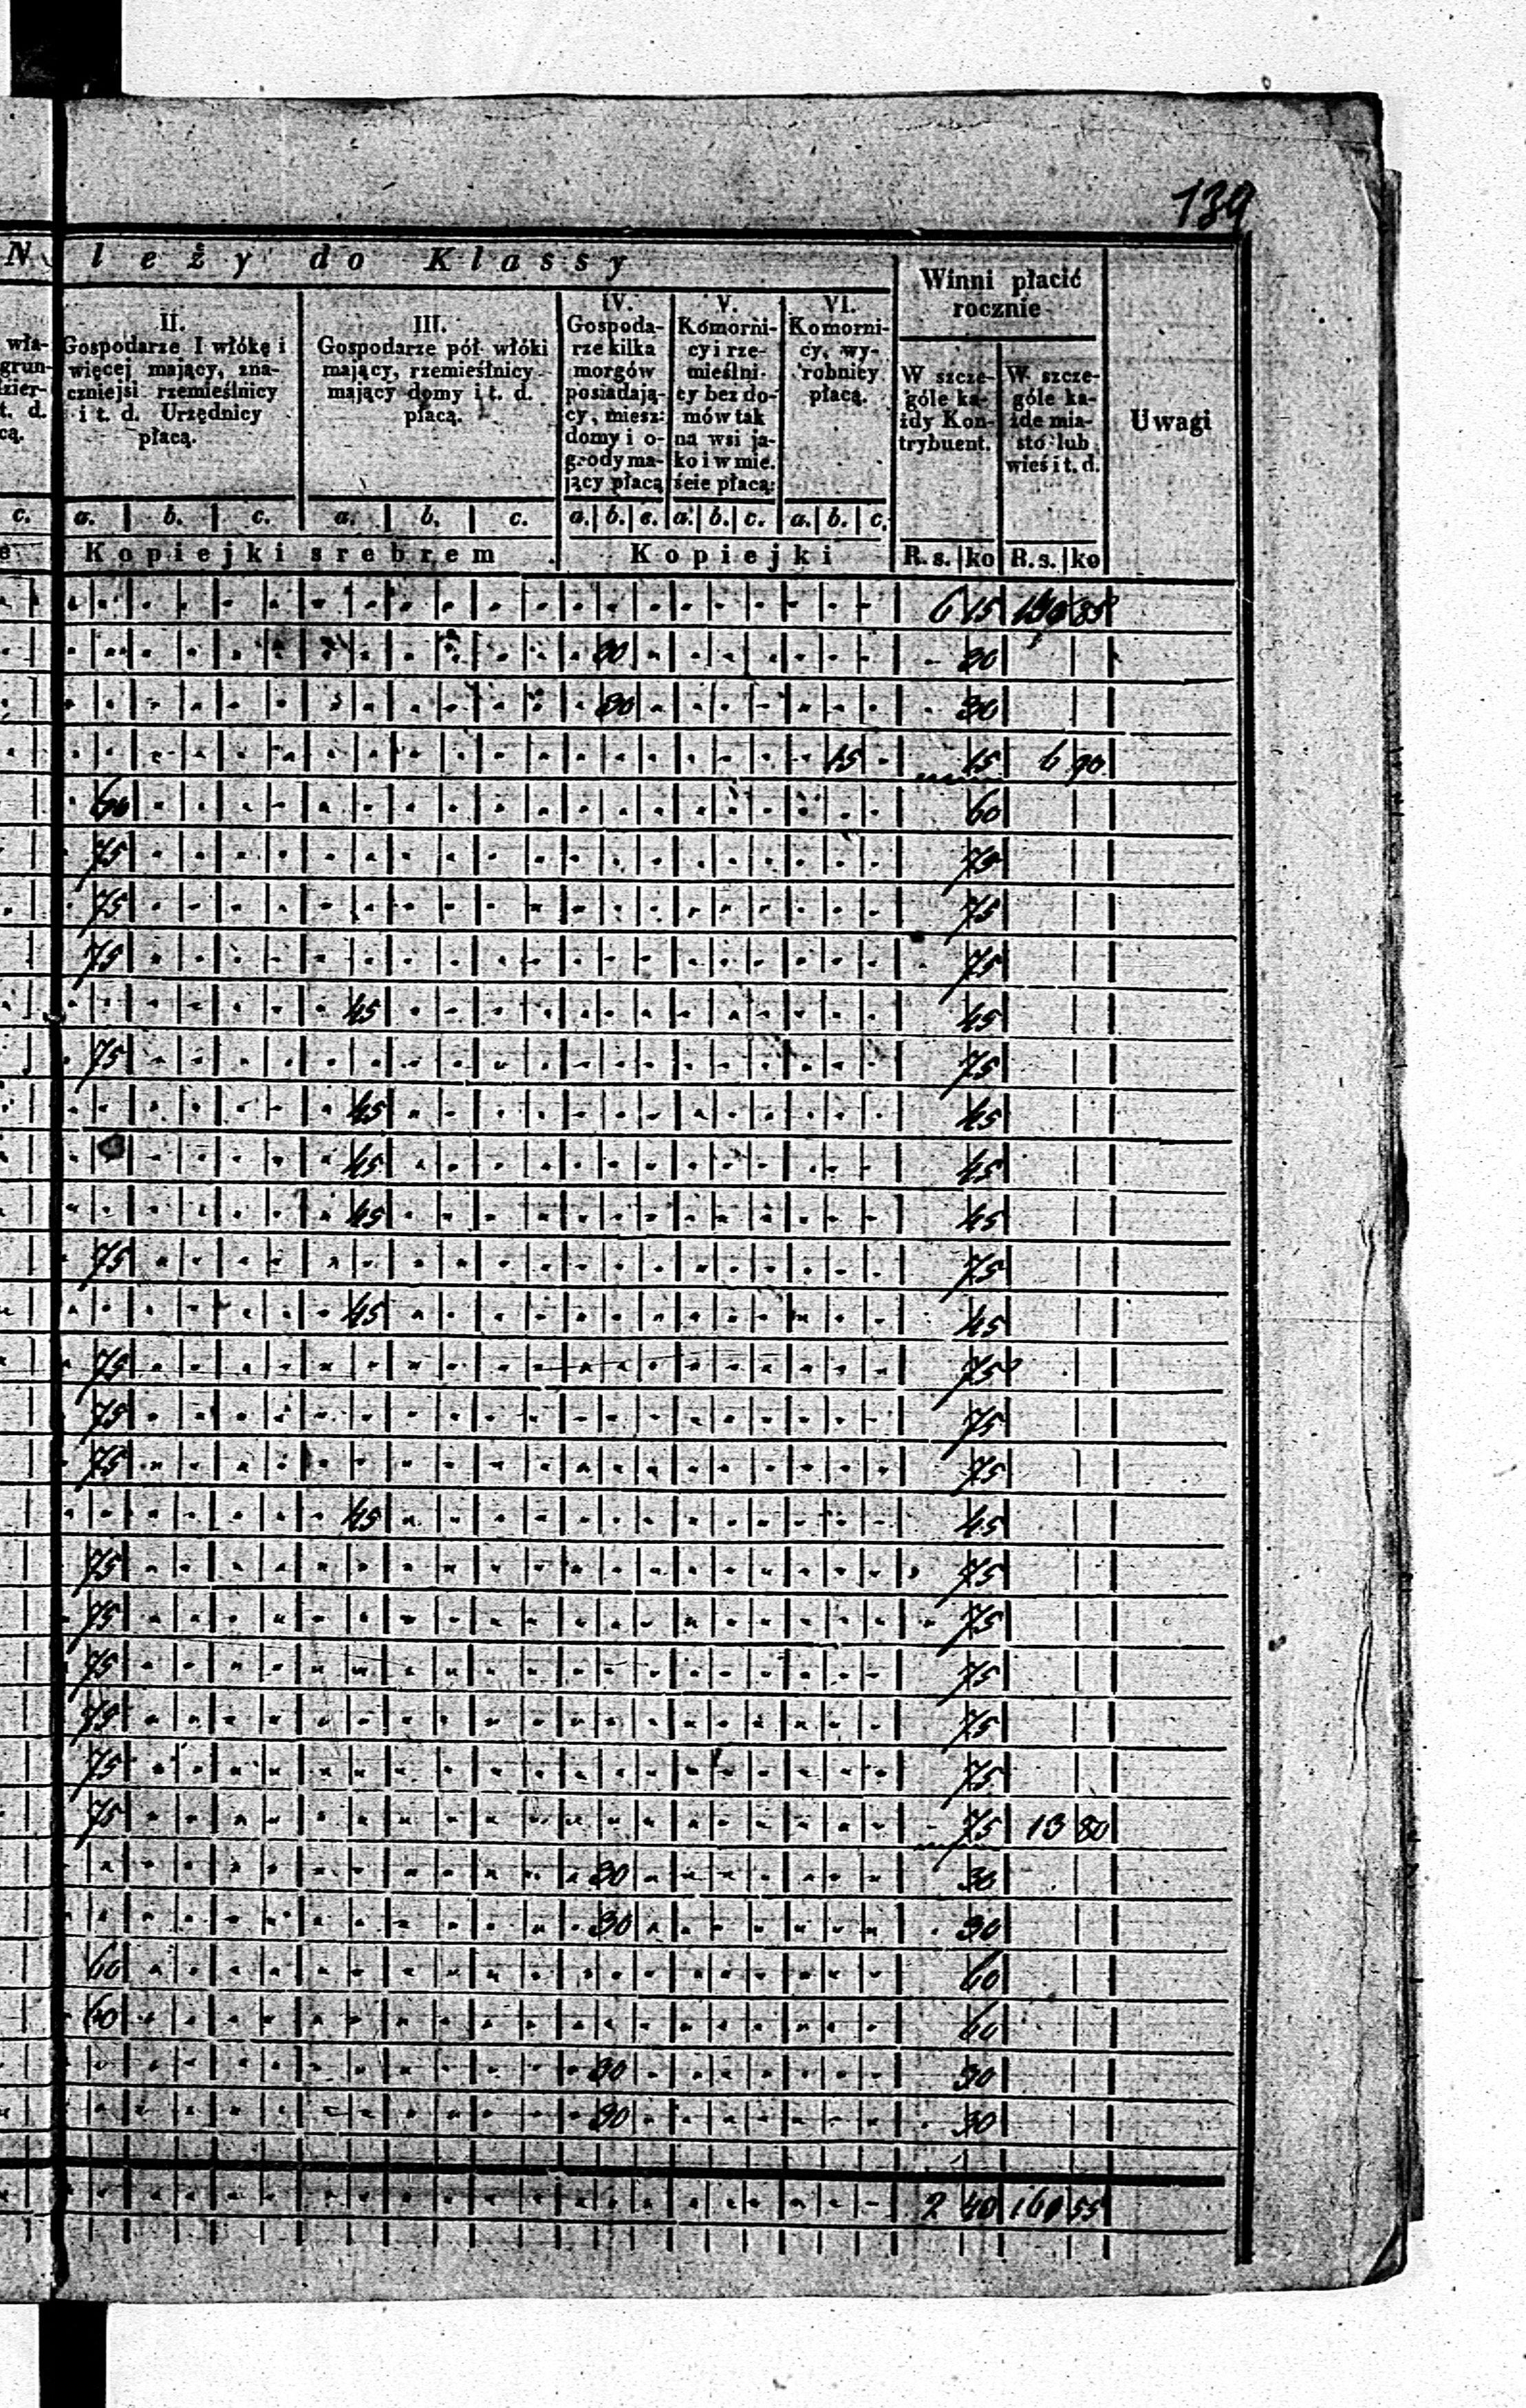 139
N
leży do Klassy
Winni płacić
rocznie
Uwagi
wła-
grun-
dzier-
t. d.
cą.
II.
Gospodarze I włókę i
więcej mający, zna-
czniejsi rzemieślnicy
i t. d. Urzędnicy
płacą.
III.
Gospodarze pół włóki
mający, rzemieślnicy
mający domy i t. d.
płacą.
IV.
Gospoda-
rze kilka
morgów
posiadają-
cy, miesz:
domy i o-
grody ma-
jący płacą
V.
Komorni-
cy i rze-
mieślni-
cy bez do-
mów tak
na wsi ja-
ko i w mie-
ście płacą:
VI.
Komorni-
cy, wy-
robnicy
płacą.
W szcze-
góle ka-
żdy Kon-
trybuent.
W szcze-
góle ka-
żde mia-
sto lub
wieś i t. d.
c. a. b. c. a. b. c. a. b. c. a. b. c. a. b. c.
Kopiejki srebrem Kopiejki R. s. ko R. s. ko
6 15 139 85
30 30
30 30
15 15 6 90
60 60
75 75
75 75
75 75
45 45
75 75
45 45
45 45
45 45
75 75
45 45
75 75
75 75
75 75
45 45
75 75
75 75
75 75
75 75
75 75
75 75 13 80
30 30
30 30
60 60
60 60
30 30
30 30
2 40 160 55